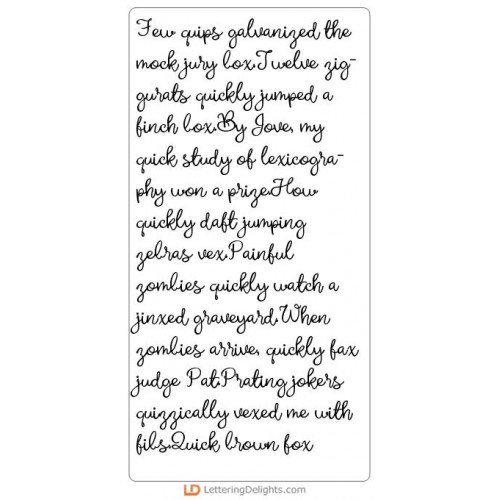 Few quips galvanized the
mock jury box.Twelve zig-
gurats quickly jumped a
finch box.By Jove, my
quick study of lexicogra-
phy won a prize.How
quickly daft jumping
zebras vex.Painful
zombies quickly watch a
jinxed graveyard.When
zombies arrive, quickly fax
judge Pat.Prating jokers
quizzically vexed me with
fibs.Quick brown fox
LD LetteringDelights.com